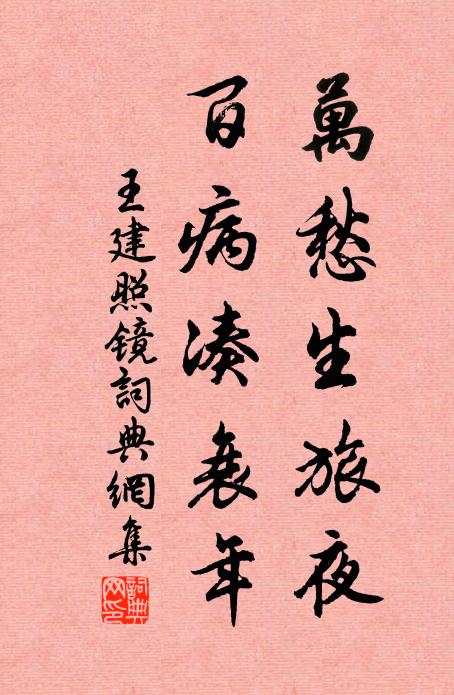 萬愁生旅夜
百病湊衰年
王建照鏡詞典網集
詞典
网印